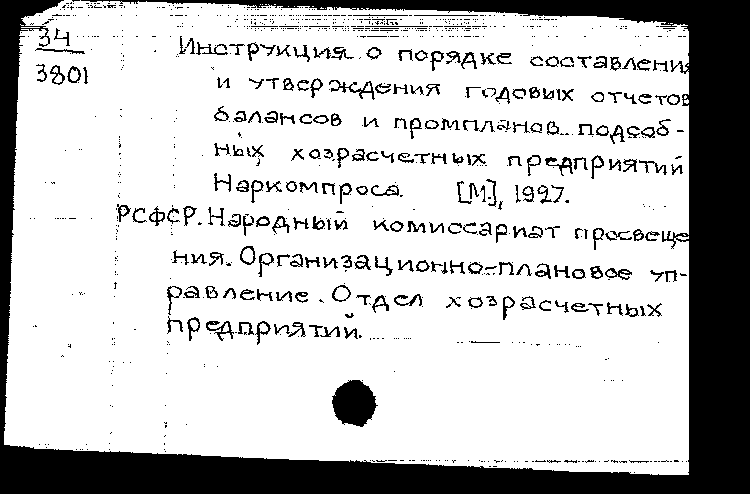 34
3801
Инструкция о порядке составления
и утверждения годовых отчетов
балансов и промпланов подсоб-
ных хозрасчетных предприятий
Наркомпроса. [М], 1927.
РСФСР. Народный комиссариат просвеще
ния. Организационно-плановое уп-
равление. Отдел хозрасчетных
предприятий.